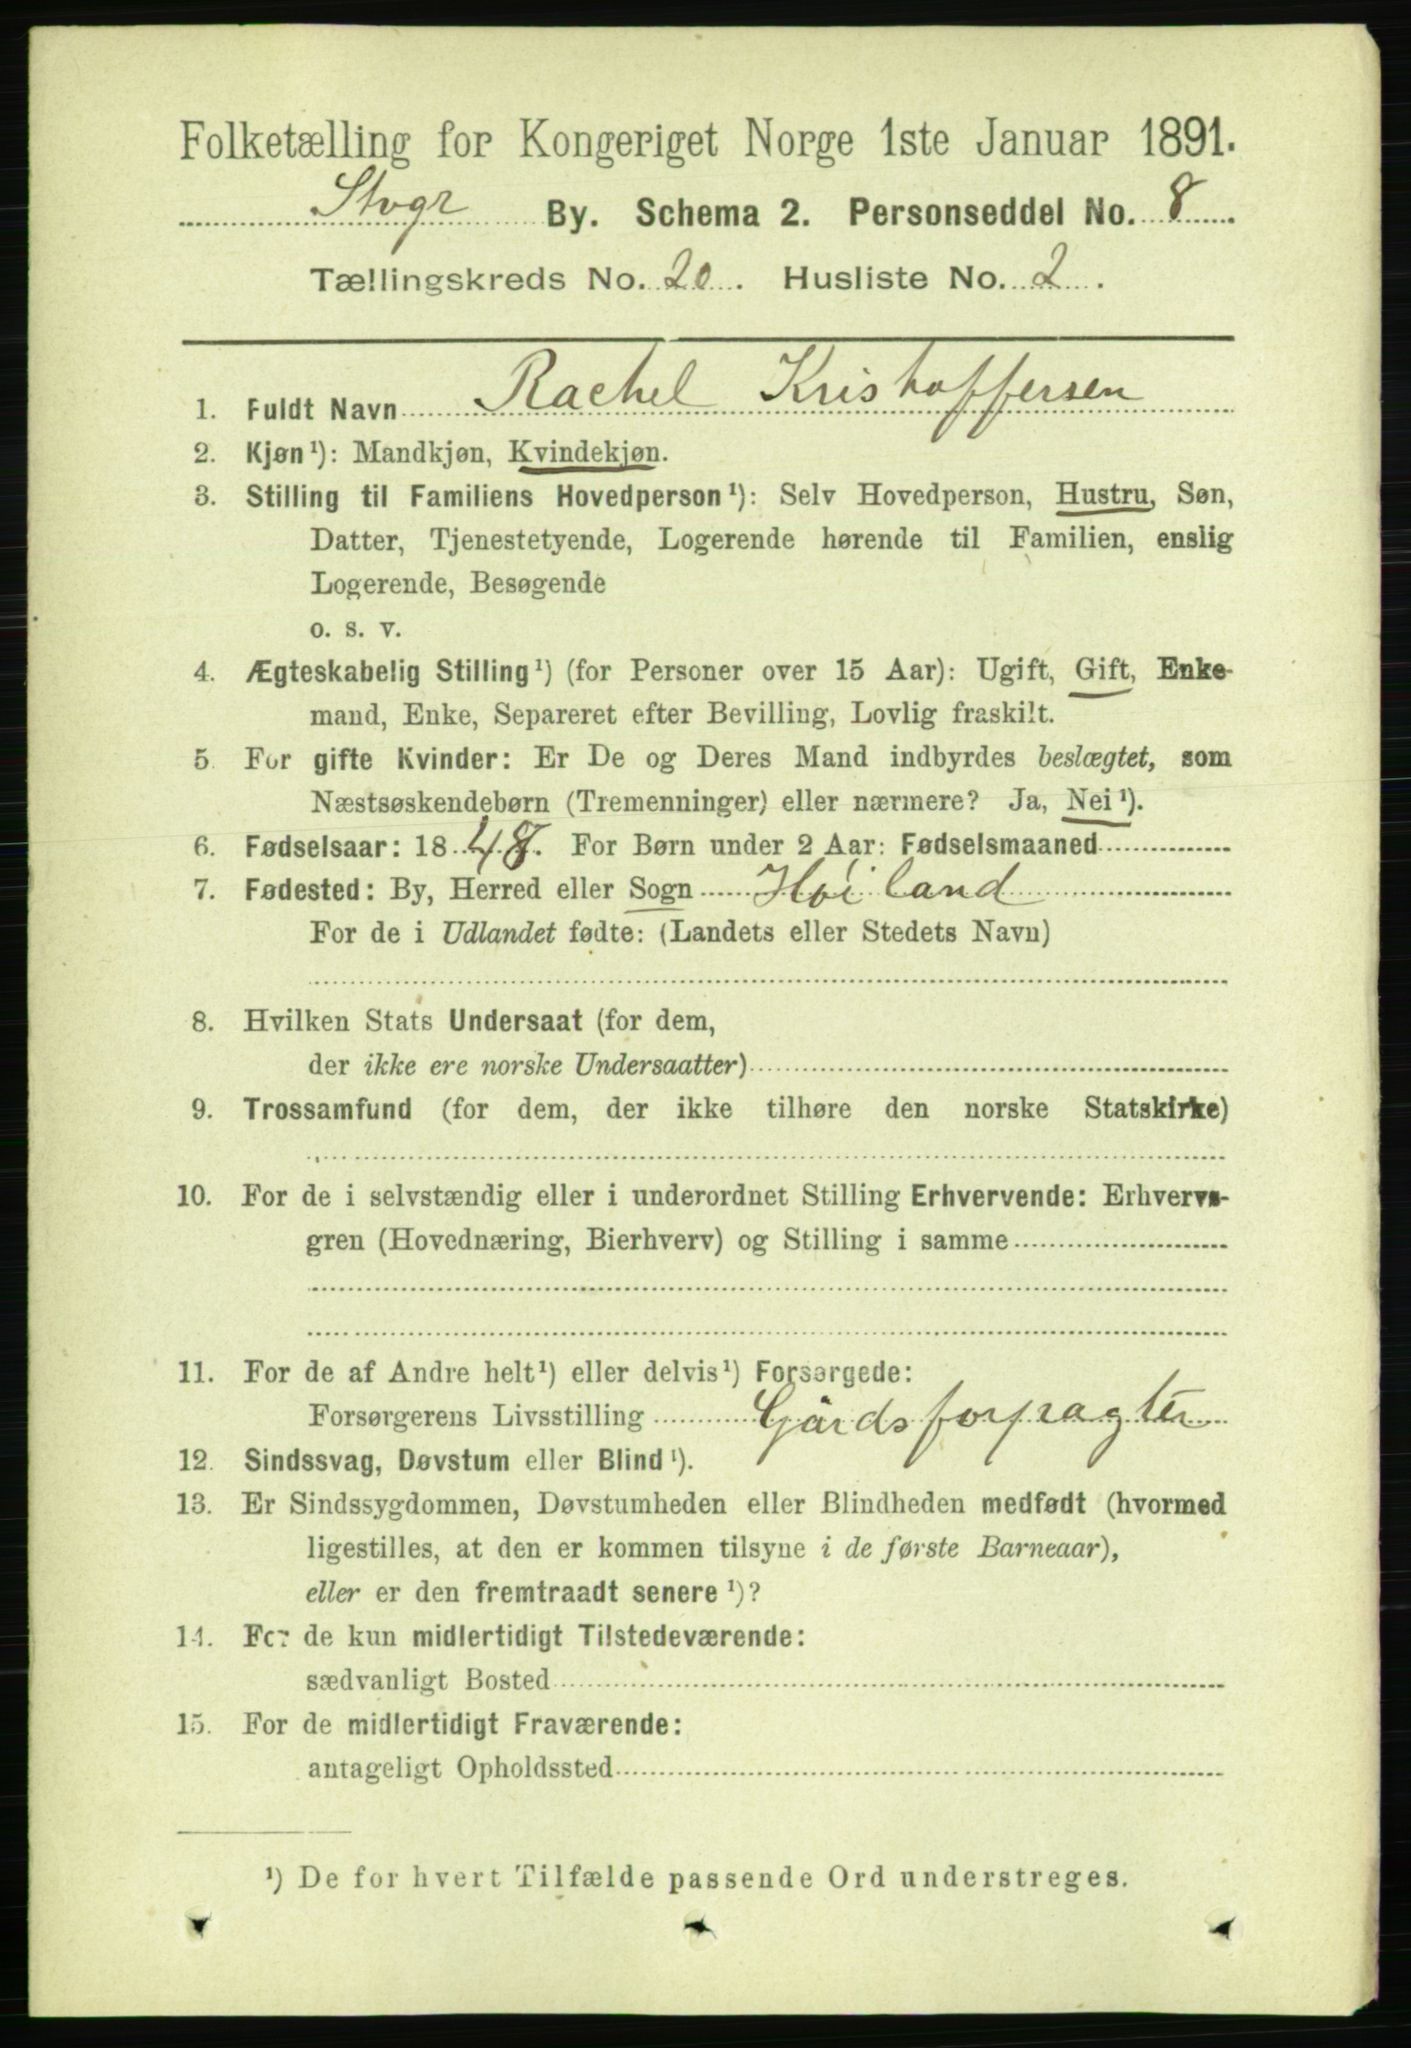 Folketælling for Kongeriget Norge 1ste Januar 1891.
Stvgr By. Schema 2. Personseddel No. 8.
Tællingskreds No. 20. Husliste No. 2.
1. Fuldt Navn Rachel Kristoffersen
2. Kjøn¹): Mandkjøn, Kvindekjøn.
3. Stilling til Familiens Hovedperson¹): Selv Hovedperson, Hustru, Søn,
Datter, Tjenestetyende, Logerende hørende til Familien, enslig
Logerende, Besøgende
o. s. v.
4. Ægteskabelig Stilling¹) (for Personer over 15 Aar): Ugift, Gift, Enke-
mand, Enke, Separeret efter Bevilling, Lovlig fraskilt.
5. For gifte Kvinder: Er De og Deres Mand indbyrdes beslægtet, som
Næstsøskendebørn (Tremenninger) eller nærmere? Ja, Nei¹).
6. Fødselsaar: 1848. For Børn under 2 Aar: Fødselsmaaned
7. Fødested: By, Herred eller Sogn Høiland
For de i Udlandet fødte: (Landets eller Stedets Navn)
8. Hvilken Stats Undersaat (for dem,
der ikke ere norske Undersaatter)
9. Trossamfund (for dem, der ikke tilhøre den norske Statskirke)
10. For de i selvstændig eller i underordnet Stilling Erhvervende: Erhvervs-
gren (Hovednæring, Bierhverv) og Stilling i samme
11. For de af Andre helt¹) eller delvis¹) Forsørgede:
Forsørgerens Livsstilling Gårdsforpagter
12. Sindssvag, Døvstum eller Blind¹).
13. Er Sindssygdommen, Døvstumheden eller Blindheden medfødt (hvormed
ligestilles, at den er kommen tilsyne i de første Barneaar),
eller er den fremtraadt senere¹)?
14. For de kun midlertidigt Tilstedeværende:
sædvanligt Bosted
15. For de midlertidigt Fraværende:
antageligt Opholdssted
¹) De for hvert Tilfælde passende Ord understreges.